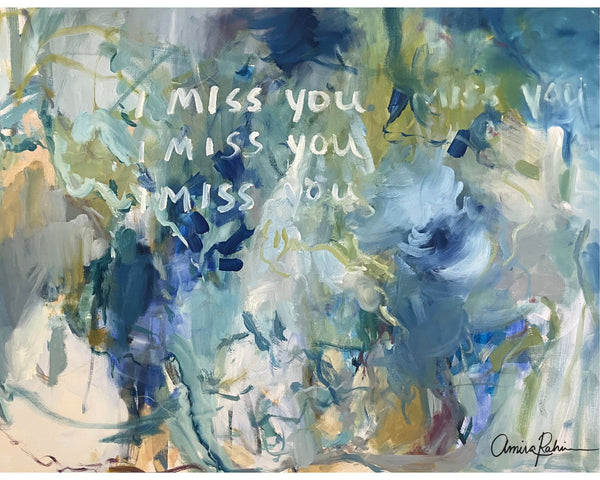 I MISS YOU. MISS YOU
I MISS YOU
I MISS YOU
Amira Rahim